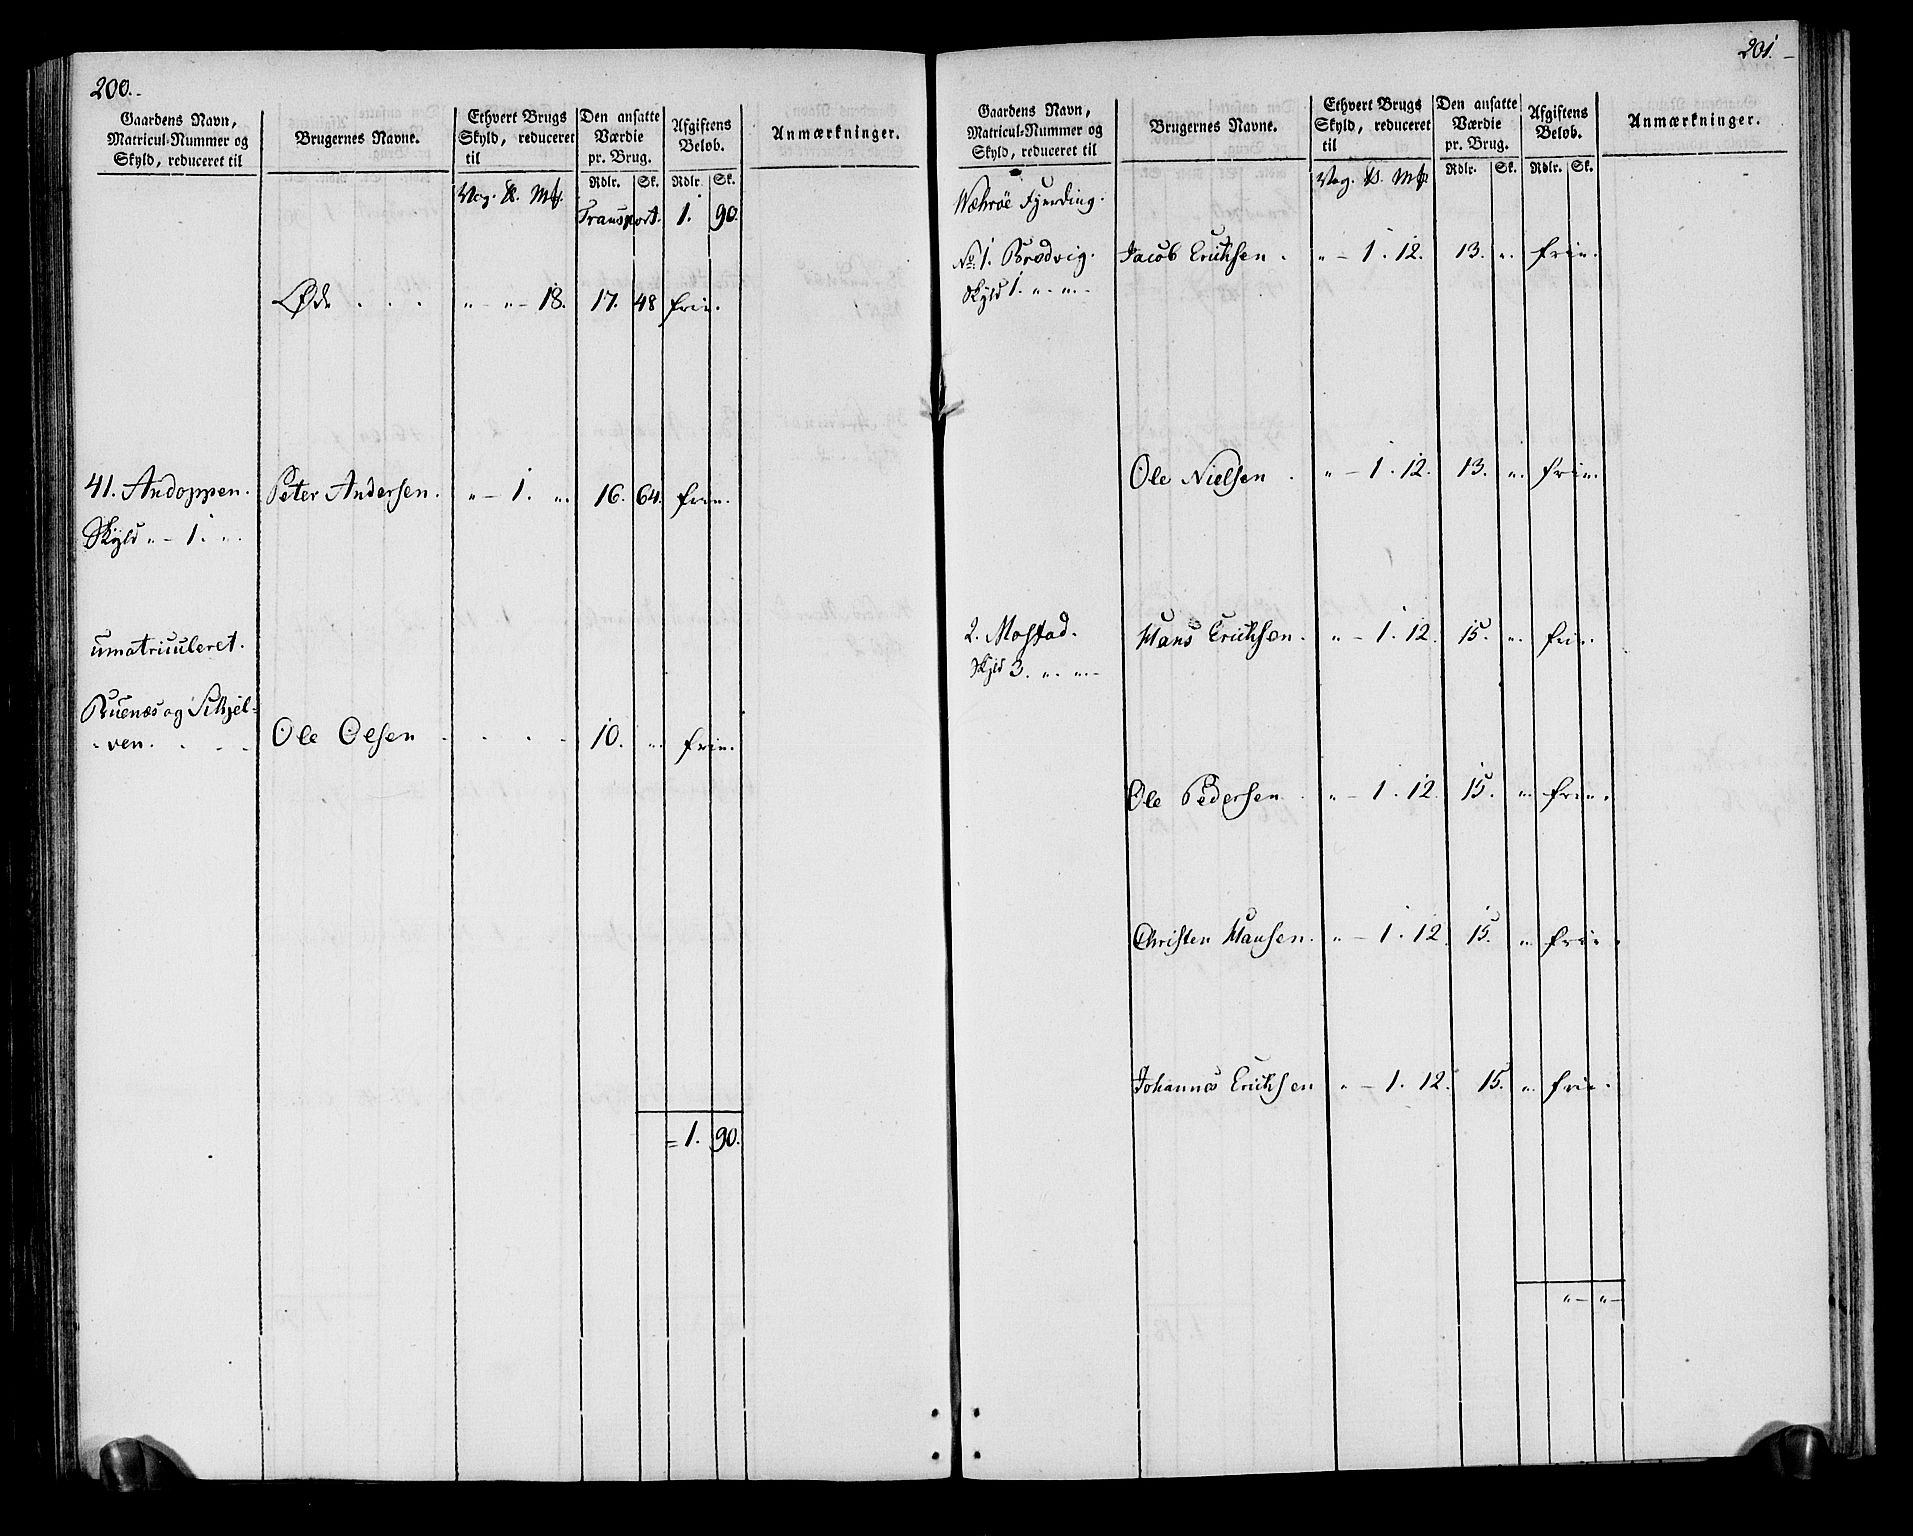 200.-
Gaardens Navn, Matricul-Nummer og Skyld, reduceret til
Brugernes Navne.
Ethvert Brugs Skyld, reduceret til
Den ansatte Værdie pr. Brug.
Afgiftens Beløb.
Anmærkninger.
Rdlr. Sk. Rdlr. Sk.
Transport. 1. 90.
Øde . . . " - " - 18. 17. 48 frie.
41. Andoppen. Peter Andersen. " - 1. " 16. 64. frie.
Skyld " - 1. "
umatriculeret.
ven. Ole Olsen . . . . 10. " frie.
= 1. 90.
201. -
Gaardens Navn, Matricul-Nummer og Skyld, reduceret til
Brugernes Navne.
Ethvert Brugs Skyld, reduceret til
Den ansatte Værdie pr. Brug.
Afgiftens Beløb.
Anmærkninger.
Rdlr. Sk. Rdlr. Sk.
Wæhrøe Fjerding.
No 1. Brædvig. Jacob Erichsen. " - 1. 12. 13. " frie.
Skyld 1. " - " -
Ole Nielsen . " - 1. 12. 13. " frie.
2. Mostad. Hans Erichsen. " - 1. 12. 15. " frie.
Skyld 3. " - " -
Ole Pedersen . " - 1. 12. 15. " frie.
Christen Hansen. " - 1. 12. 15. " frie.
Johannes Erichsen " - 1. 12. 15. " frie.
" - " -